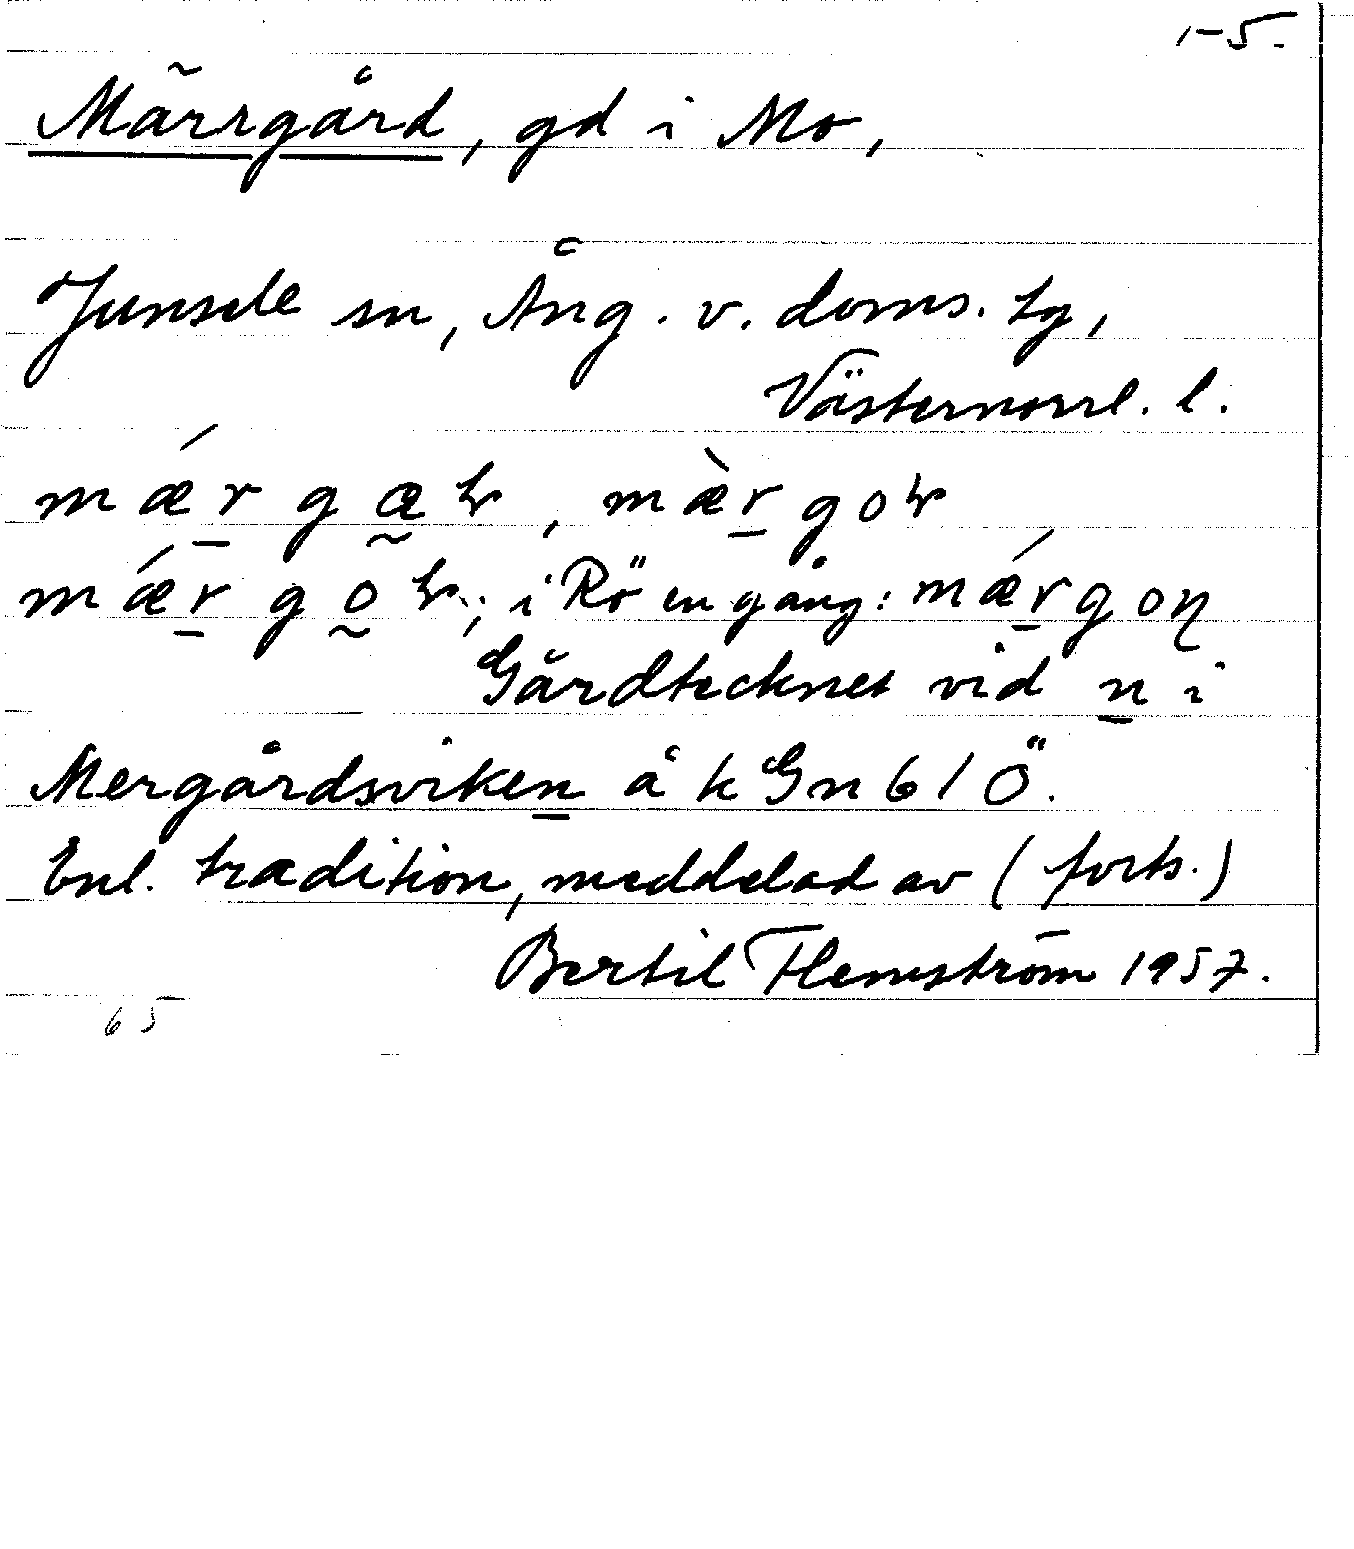 1-5.
Märrgård, gd i Mo,
Junsele sn, Ång. v. doms. tg,
Västernorrl. l.
mǽr̲gæ̰ɽ, mæ̀r̲goɽ
mǽr̲go̰ɽ; i Rö en gång: mǽr̲goɳ
Gårdtecknet vid n̲ i
Mergårdsviken̲ å k Gn 61 Ö.
Enl. tradition, meddelad av (forts.)
Bertil Flemström 1957.
65